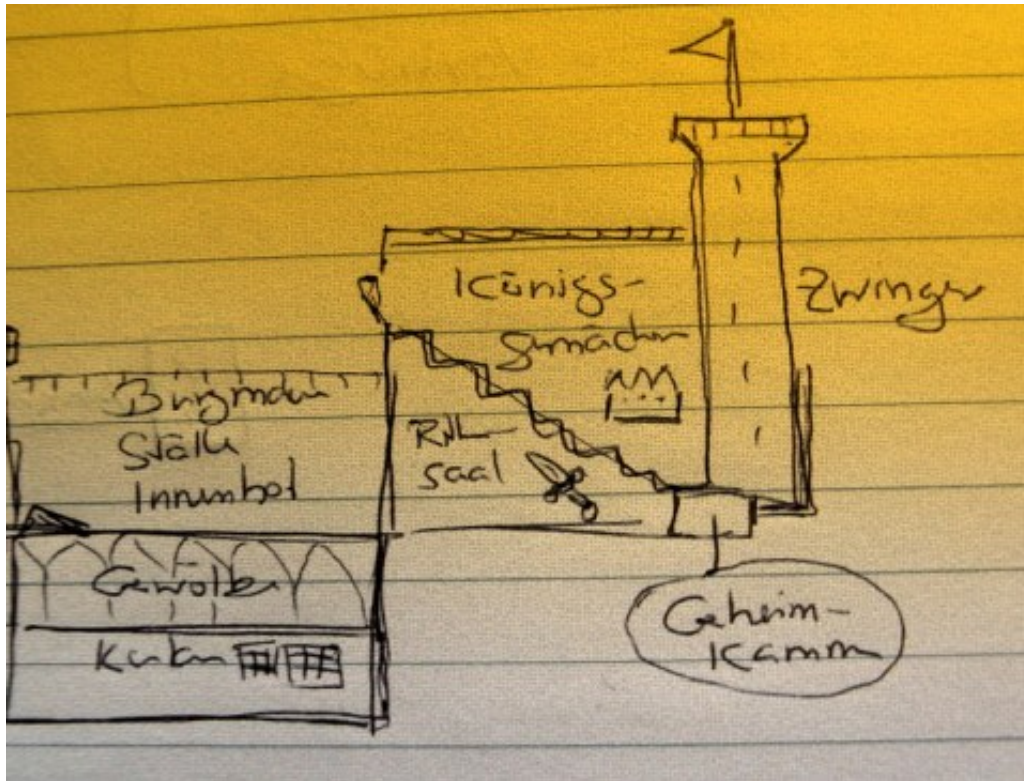 Königs-
gemächer
Zwinger
Burgmauer
Ställe
Innenhof
Rit.-
saal
Gewölbe
Kerker
Geheim-
kammer